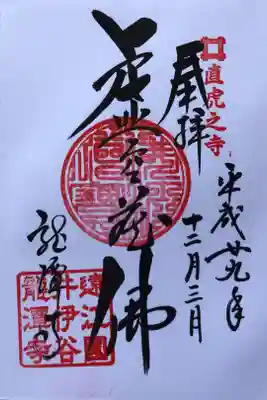 直虎之寺
奉拝
平成廿九年
十二月三日
虚空蔵佛
龍潭寺
遠江國
井伊谷
龍潭寺